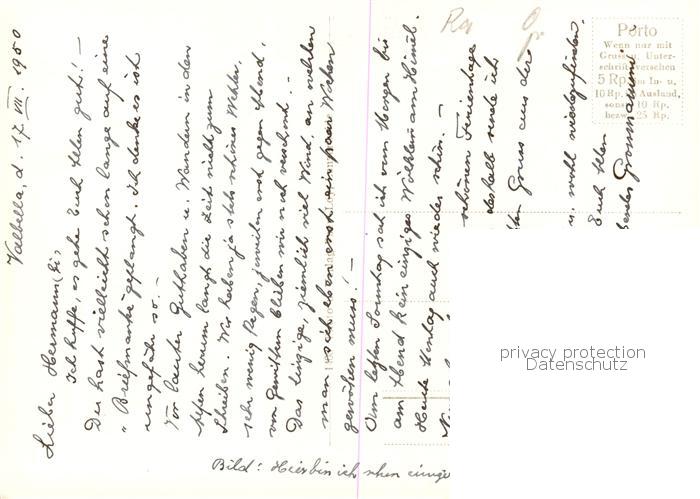 Valbella, d. 17. VII. 1950
Lieber Hermann,
Ich hoffe, es gehe Euch allen gut! –
Du hast vielleicht schon lange auf eine
"Briefmarke" geplangt. Ich denke es ist
ungefähr so. –
Vor lauter Guthaben u. Wandern in den
Alpen herum langt die Zeit nicht zum
Schreiben. Wir haben ja stets schönes Wetter,
sehr wenig Regen, jeweilen erst gegen Abend,
von Gewittern blieben wir noch verschont. –
Das Einzige, ziemlich viel Wind, an welchen
man sich eben erst ein paar Wochen
gewöhnen muss! –
Am letzten Sonntag sah ich vom Morgen bis
am Abend kein einziges Wölklein am Himmel.
Heute Montag auch wieder schön. –
schönen Ferientage
deshalb sende ich
Gruss aus der
u. wohl
Euch allen
Bild: Hier bin ich schon einige
Porto
Wenn nur mit
Gruss u. Unter-
schrift versehen
5 Rp. im In- u.
10 Rp. Ausland,
sonst 10 Rp.
bezw. 25 Rp.
privacy protection
Datenschutz